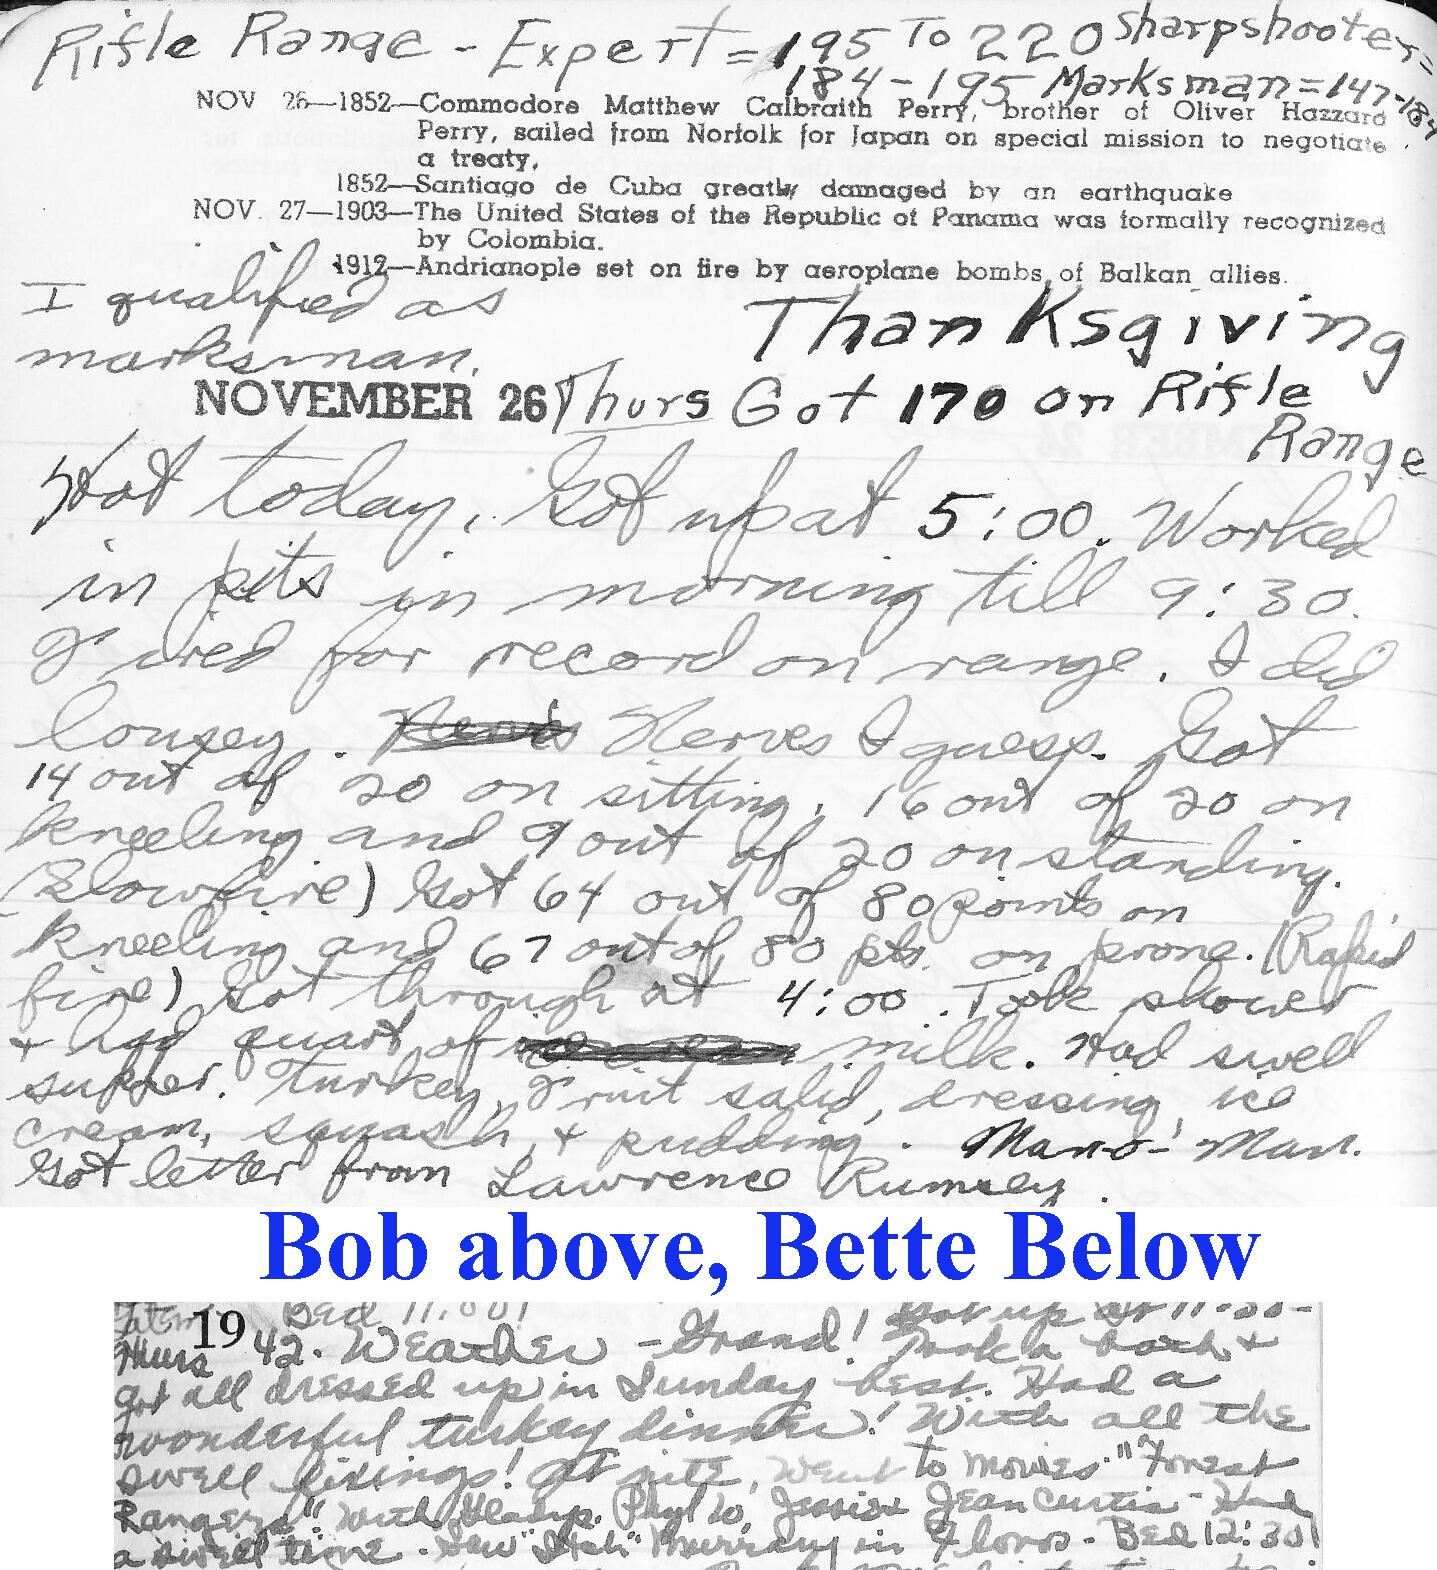 Rifle Range - Expert = 195 To 220 Sharpshooter =
184-195 Marksman = 147-184
NOV 26—1852—Commodore Matthew Calbraith Perry, brother of Oliver Hazzard
Perry, sailed from Norfolk for Japan on special mission to negotiate
a treaty.
1852—Santiago de Cuba greatly damaged by an earthquake
NOV. 27—1903—The United States of the Republic of Panama was formally recognized
by Colombia.
1912—Andrianople set on fire by aeroplane bombs of Balkan allies.
I qualified as
marksman.
Thanksgiving
NOVEMBER 26 Thurs Got 170 on Rifle
Range
Hot today. Got up at 5:00. Worked
in pits in morning till 9:30.
Fired for record on range. I did
lousey. Nerves I guess. Got
14 out of 20 on sitting, 16 out of 20 on
kneeling and 9 out of 20 on standing.
(Slowfire) Got 64 out of 80 points on
kneeling and 67 out of 80 pts. on prone. (Rapid
fire) Got through at 4:00. Took shower
+ had quart of milk. Had swell
supper. Turkey, Fruit salid, dressing, ice
cream, squash, + pudding. Man-o-Man.
Got letter from Lawrence Rumsey.
Bob above, Bette Below
Bed 11:00! Got up at 11:30-
Thurs 1942. Weather - Grand! Took a bath +
got all dressed up in Sunday best. Had a
wonderful turkey dinner! With all the
swell fixings! At nite, went to movies. "Forest
Rangers" with Gladys, Phyl W, Jessie Jean Curtis - Had
a swell time. Saw Murray in Flor's - Bed 12:30!